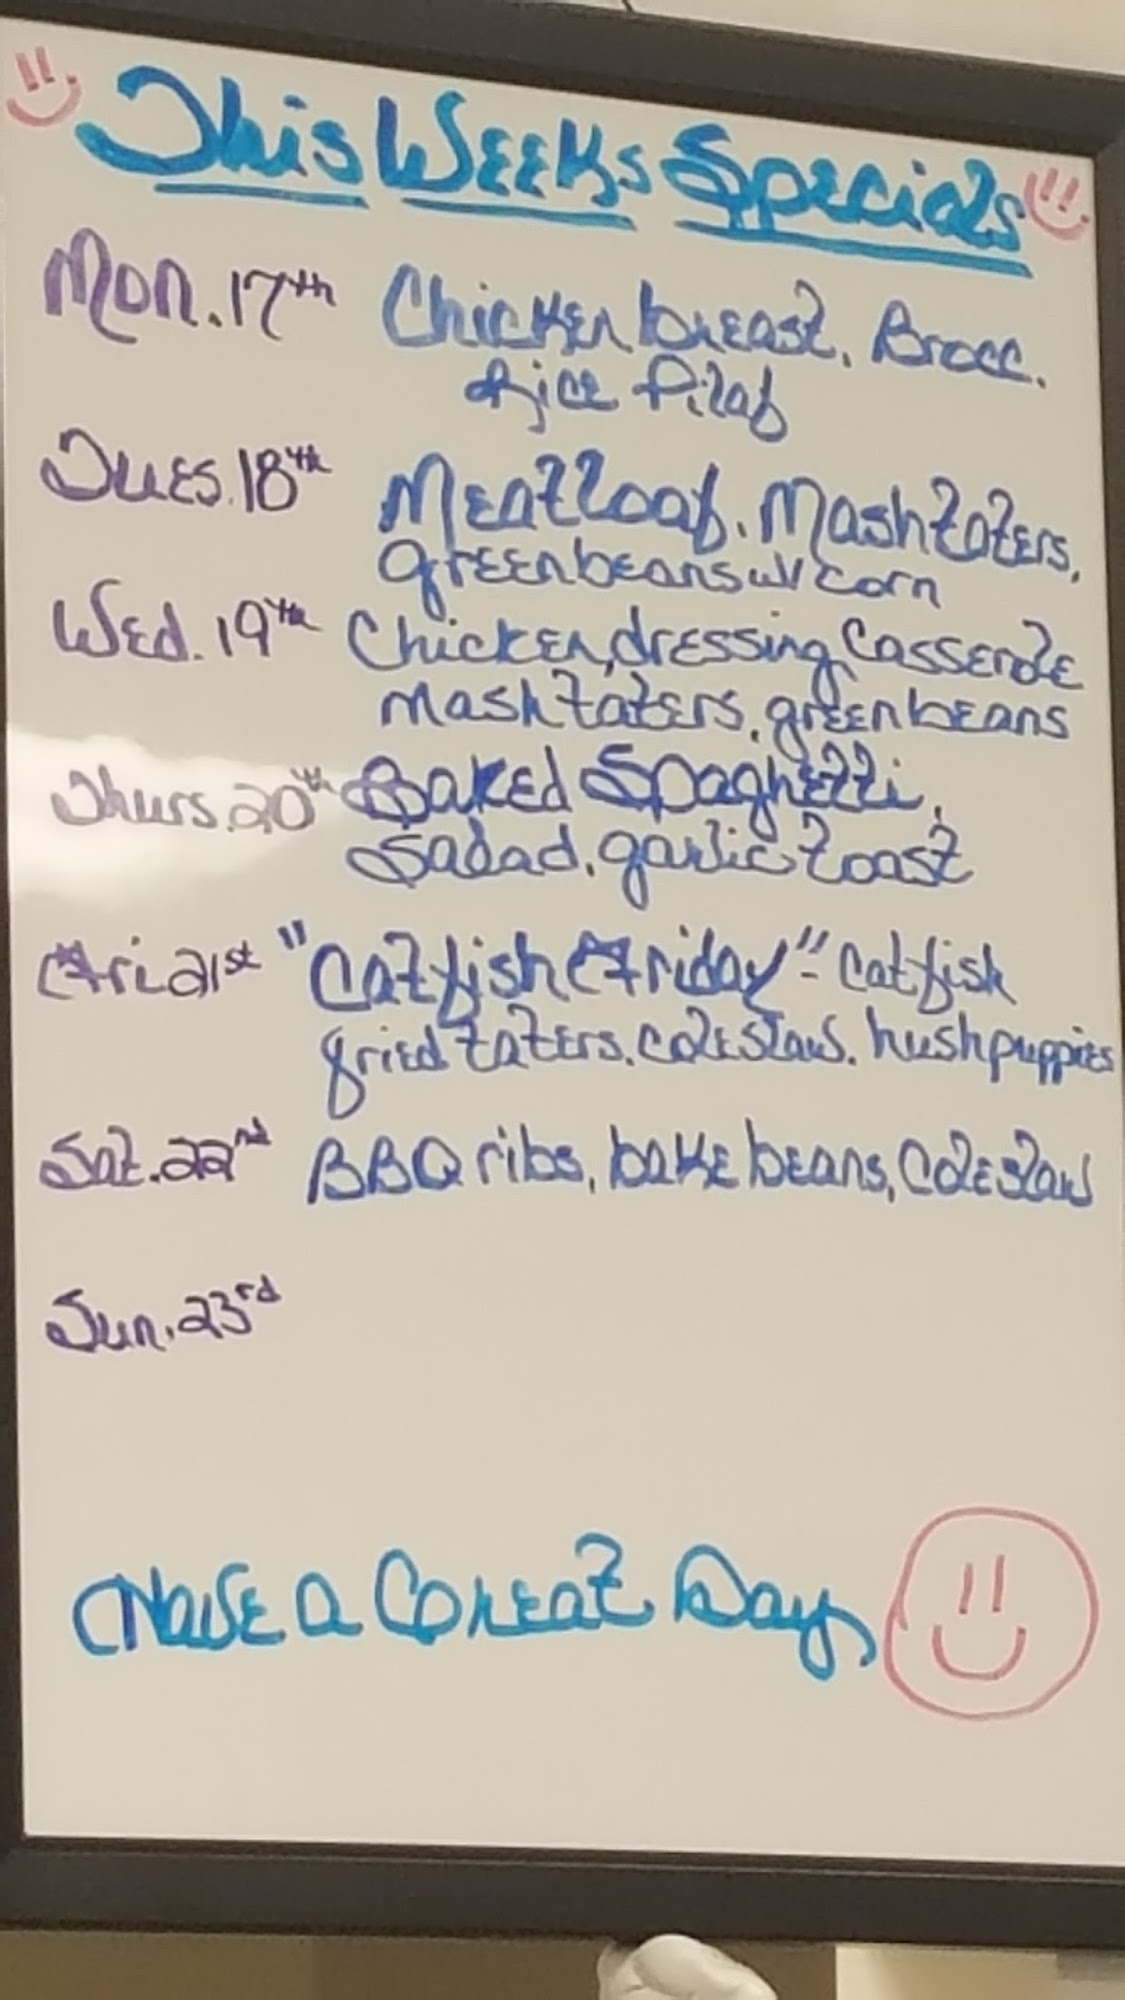 This Weeks Specials
Mon. 17th Chicken breast, Brocc.
Rice Pilaf
Tues. 18th Meatloaf, Mash taters,
greenbeans w/ corn
Wed. 19th Chicken, dressing, Casserole
mash taters, greenbeans
Thurs. 20th Baked Spaghetti,
Salad, garlic toast
Fri 21st "Catfish Friday" - Catfish
fried taters, coleslaw, hushpuppies
Sat. 22nd BBQ ribs, bake beans, Coleslaw
Sun. 23rd
Have a Great Day